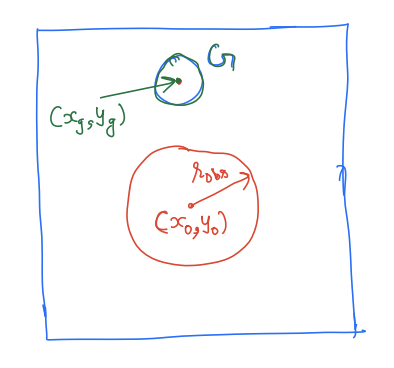 G
(x_g, y_g)
r_obs
(x_0, y_0)